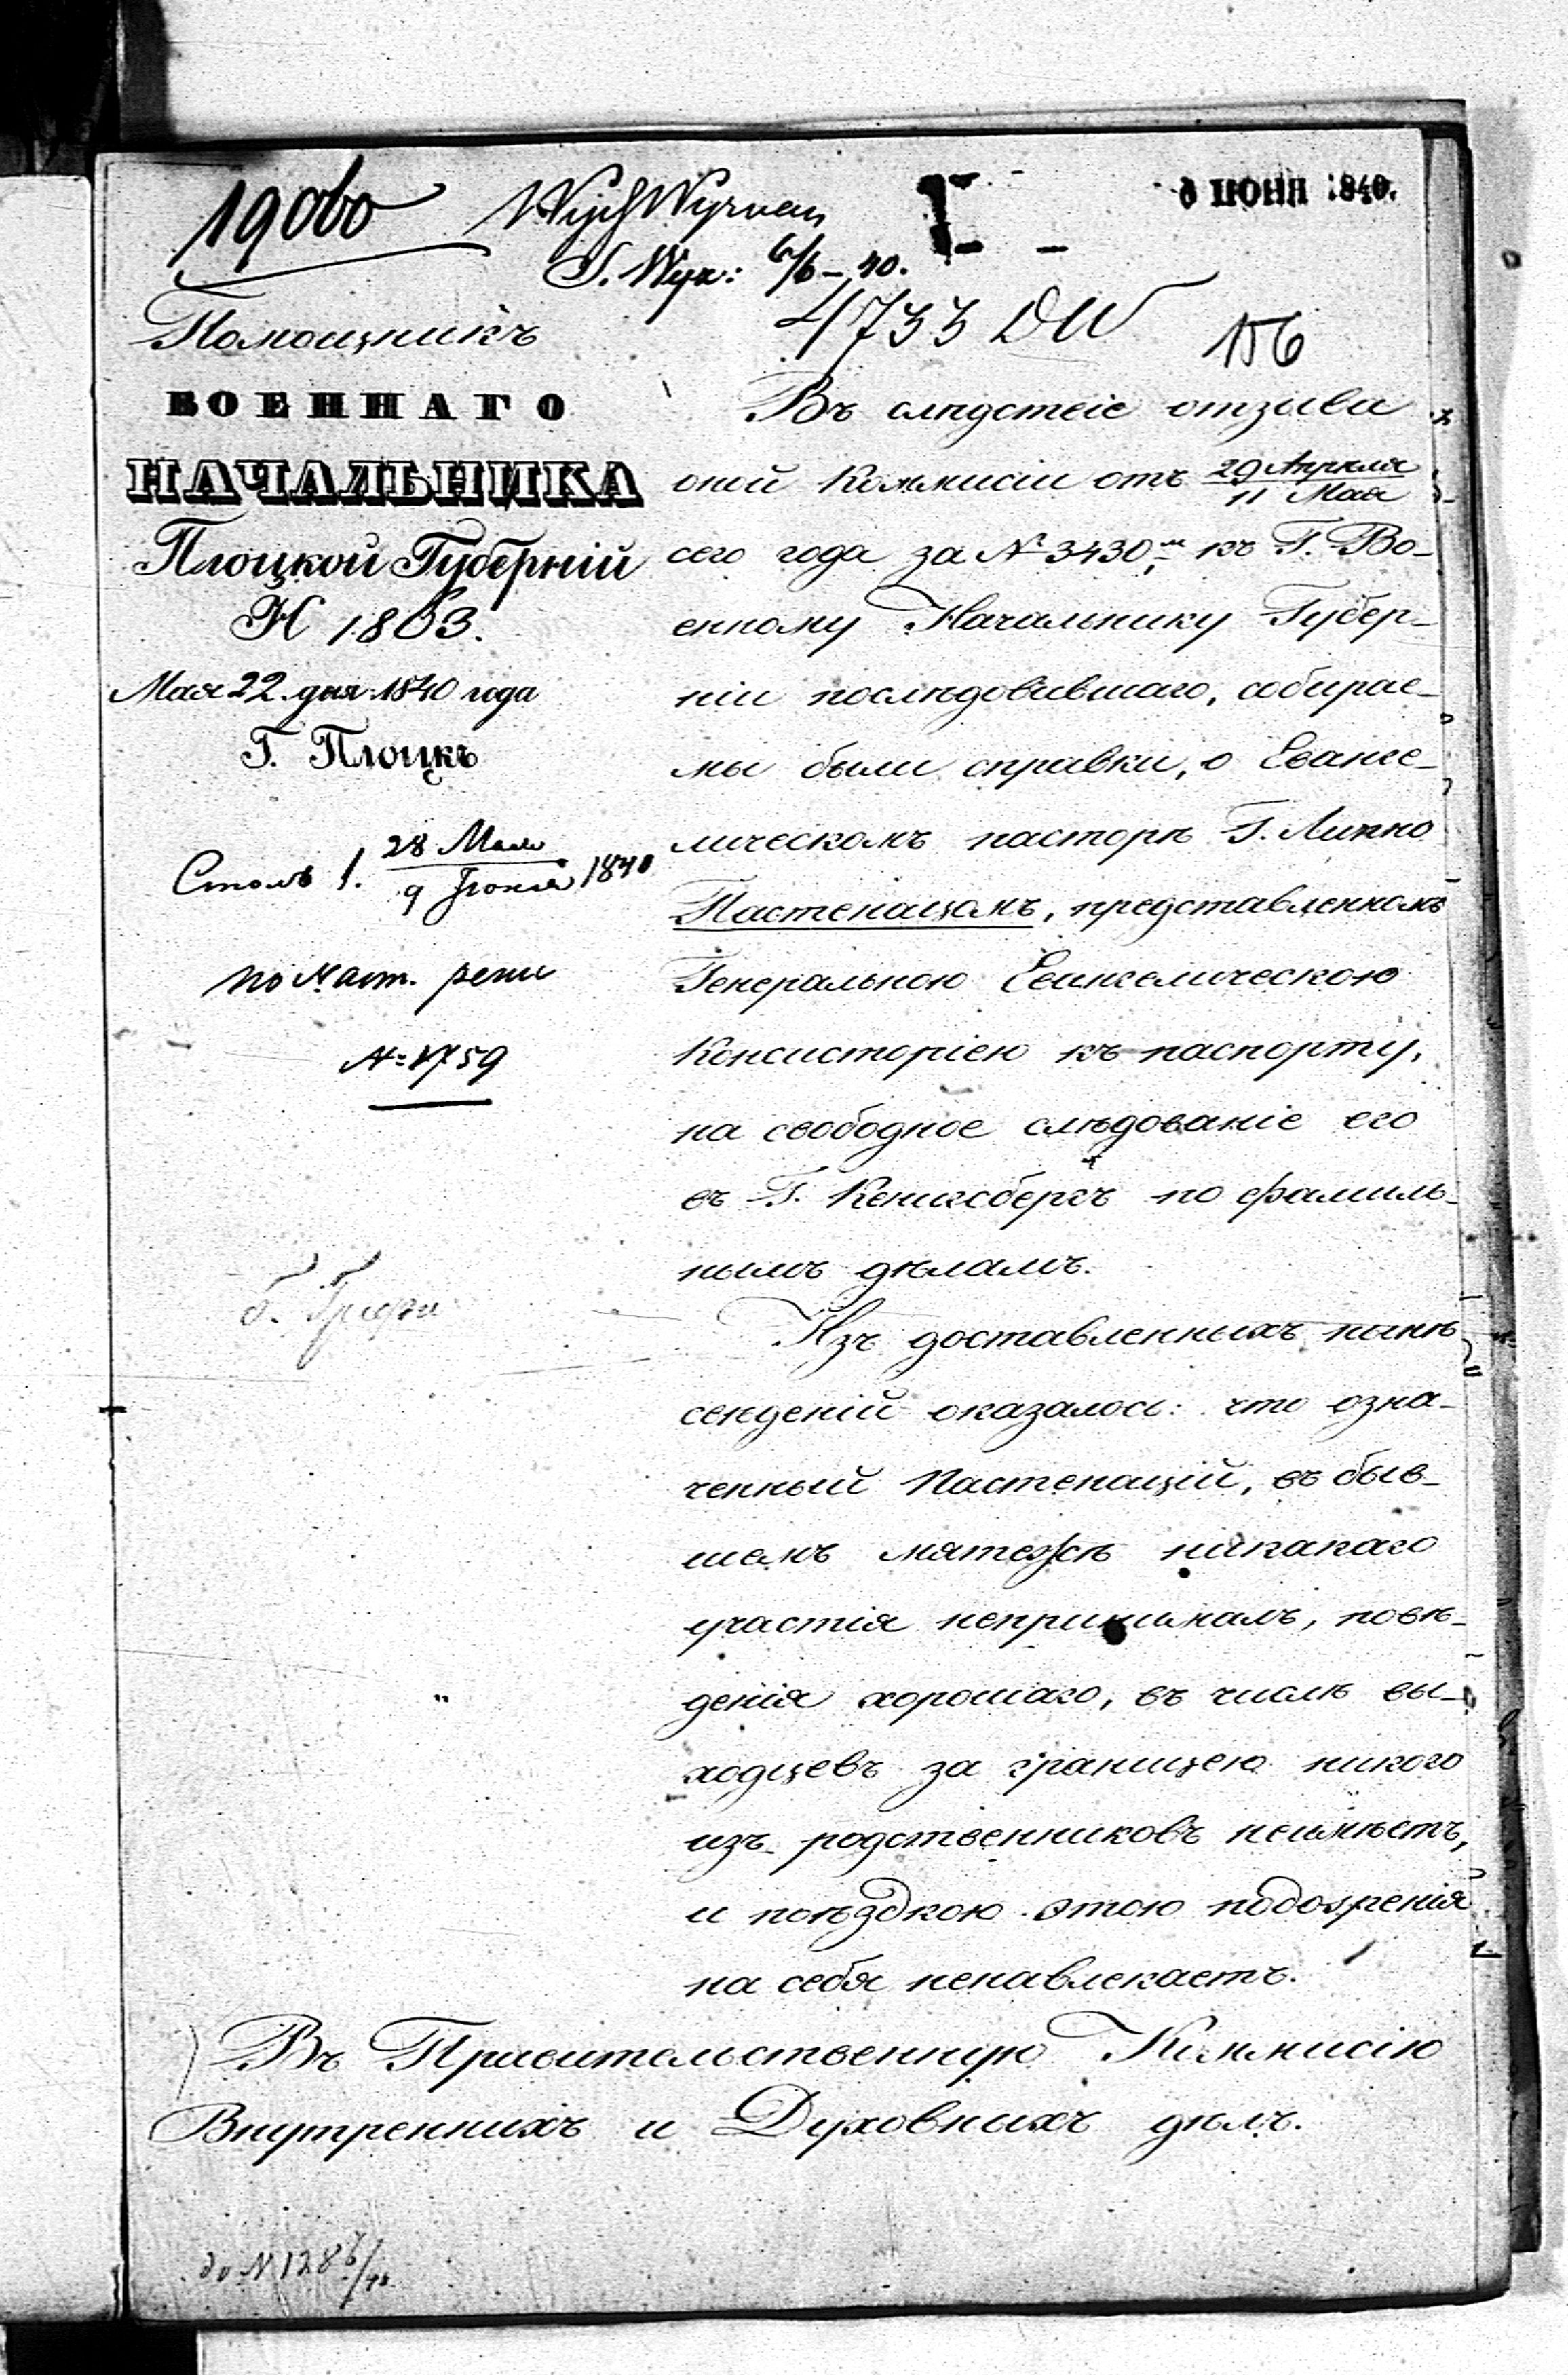 19060
6 ИЮНЯ 1840.
S. Wyz: 6/6 – 40.
4733 DW
156
Помощникъ
ВОЕННАГО
НАЧАЛЬНИКА
Плоцкой Губерніи
№ 1803.
Мая 22. дня 1840 года
Г. Плоцкъ
Столъ 1. 28 Мая / 9 Іюня 1840
по Наст. реги
№ 1759
Въ слѣдствіе отзыва
оной Коммисіи отъ 29 Апрѣля / 11 Мая
сего года за № 3430м, къ Г. Во-
енному Начальнику Губер-
ніи послѣдовавшаго, собирае-
мы были справки, о Еванге-
лическомъ пасторѣ Г. Липно
Пастенацомъ, представленномъ
Генеральною Евангелическою
Консисторіею къ паспорту,
на свободное слѣдованіе его
въ Г. Кенигсбергъ по фамиль-
нымъ дѣламъ.
Изъ доставленныхъ нынѣ
свѣденій оказалось: что озна-
ченный Пастенацій, въ быв-
шемъ мятежѣ никакаго
участія непринималъ, повѣ-
денія хорошаго, въ числѣ вы-
ходцевъ за границею никого
изъ родственниковъ неимѣетъ,
и поѣздкою этою подозренія
на себя ненавлекаетъ.
Въ Правительственную Коммисію
Внутреннихъ и Духовныхъ дѣлъ.
do N 1286/40